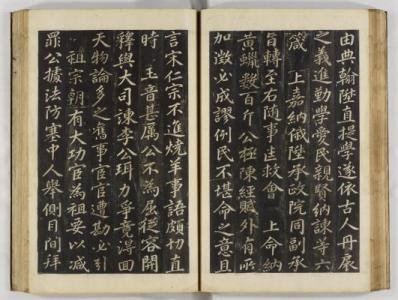 由典翰陞直提學遂依古人丹扆
之義進勤學愛民親賢納諫等六
箴 上嘉納俄陞承政院同副承
旨轉至右隨事匡救會 上命納
黃蠟數百斤公極陳經賦外有所
加徵必成謬例民不堪命之意且
言宋仁宗不進燒羊事語頗切直
時 玉音甚厲公不爲屈從容開
釋與大司諫李公珥力爭竟得回
天物論多之舊事宦官遭勘必引
祖宗朝有大功臣爲祖要以減
罪公據法防塞中人擧側目間拜